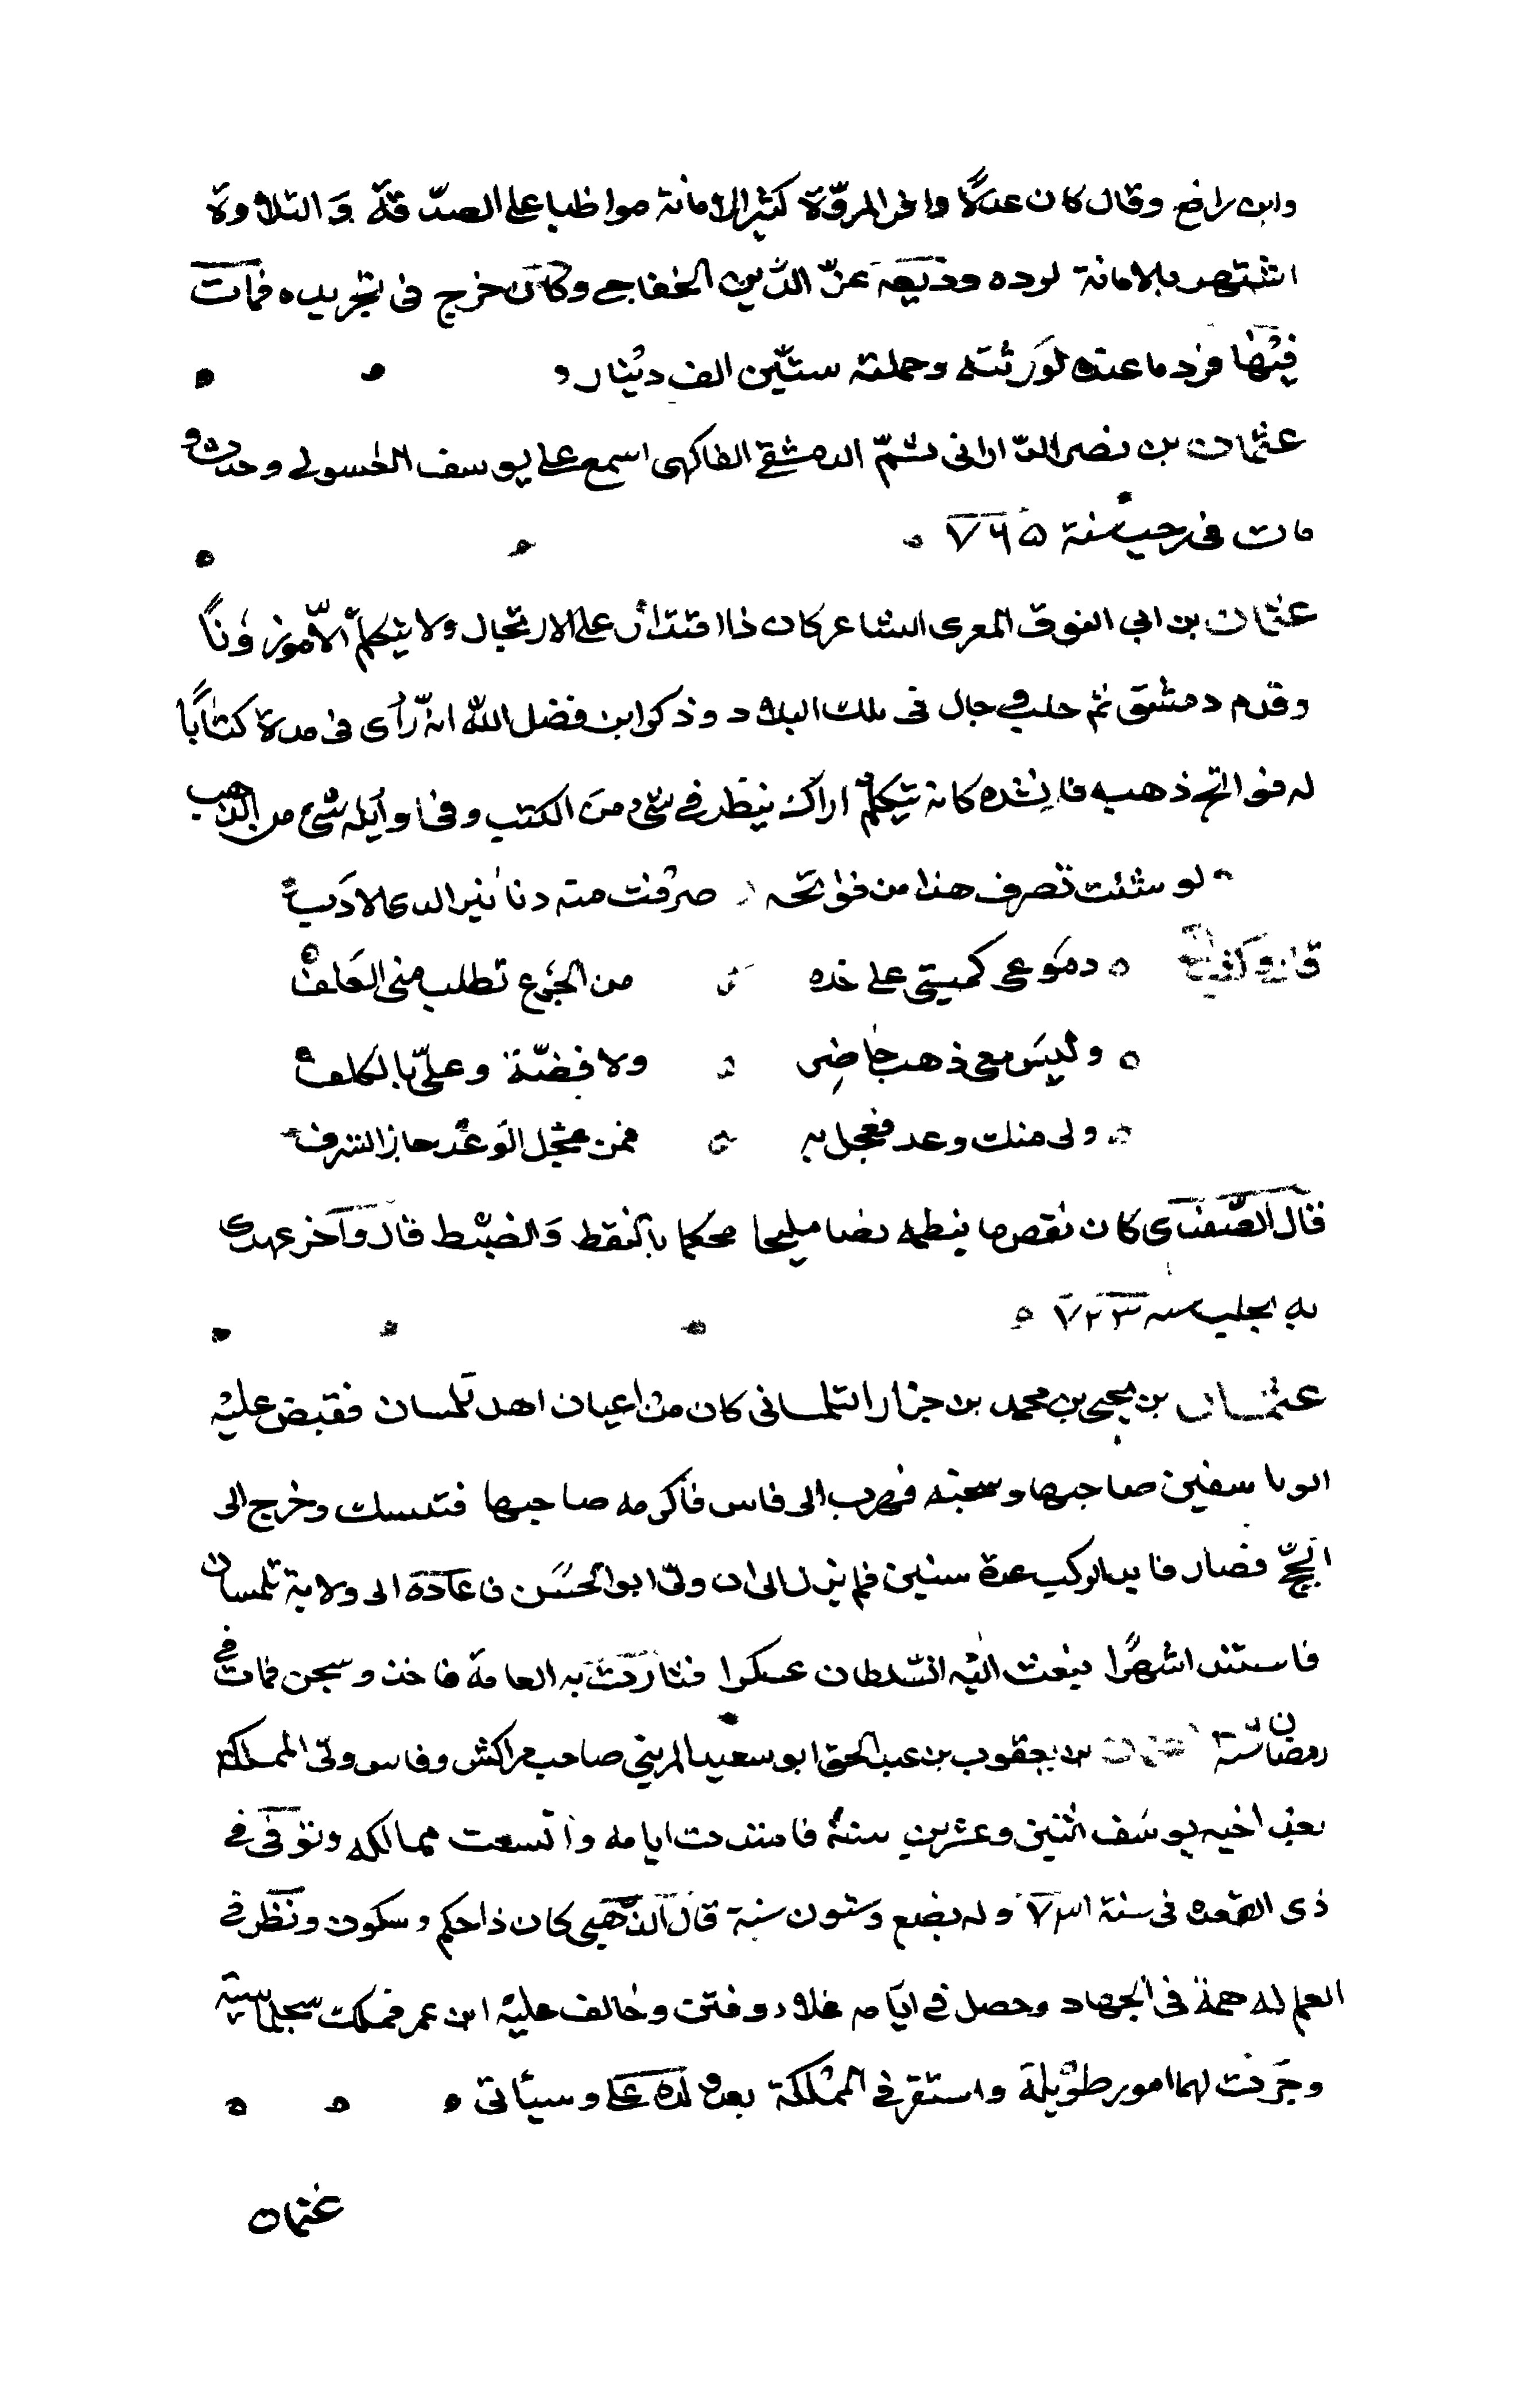 وابن رافع وقال كان عدلًا وافر المروّة كثير الامانة مواظبا على الصدّقة وَ التلاوة
اشتهر بالامانة لرده وديعة عزّ الدّين الخفاجي وكان خرج في تجريده فمات
فيها فرد ما عنده لوَرثته وحملته ستّين الف دينار
عثمان بن نصر الدّاراني ثمّ الدمشقي الفاكهي اسمع على يوسف الغسولي وحدث و
مات في رجب سنة ٧٦٥
عثمان بن ابي الفوق المعرى الشاعر كان ذا اقتدار على الارتجال ولا يتكلم الّا موزونًا
وقدم دمشق ثم حلب وجال في تلك البلاد وذكر ابن فضل الله انه رأى في مدة كتابًا
له فواتح ذهب فانشده كانه يتكلم اراك ينظر في شيء من الكتب وفى اوايله شيء من الذهب
لو شئت تصرف هذا من فواتحه صرفت منه دنانير الذى الادب
قال وكتب دموعى كميتى على خده من الجوع تطلب منى العلف
وليس معى ذهب حاضر ولا فضّة وعليّ بالكلف
ولى منك وعد فعجل به فمن عجل الوعد حاز الشرف
قال الصّفدى كان نقص ما ينظمه نصا مليحا محكما بالنقط والضبط قال وآخر عهدى
به بحلب سنه ٧٢٣
عثمان بن يحيى بن محمد بن جرار التلمسانى كان من اعيان اهل تلمسان فقبض عليه
ابو تاسفين صاحبها وسجنه فهرب الى فاس فاكرمه صاحبها فتنسك وخرج الى
الحجّ فصار قايد الركب عدة سنين فلم يزل الى ان ولّى ابو الحسن فاعاده الى ولاية تلمسان
فاستند اشهرًا فبعث اليه السّلطان عسكرا فثارت به العامة فاخذ وسجن فمات في
رمضان سنة عثمان بن يعقوب بن عبد الحق ابو سعيد المرينى صاحب مراكش وفاس ولّى المملكة
بعد اخيه يوسف اثنين وعشرين سنة فامتدت ايامه واتسعت ممالكه وتوفى في
ذى القعده في سنة ٧٣١ وله بضع وستون سنة قال الذّهبى كان ذا حكم وسكون ونظر في
العلم له همة في الجهاد وحصل في ايّامه غلاء وفتن وخالف عليه ابن عمر فملك سجلماسة
وجرت لهما امور طويلة واستقر في المملكة بعده ولده على وسيأتى
عثمان